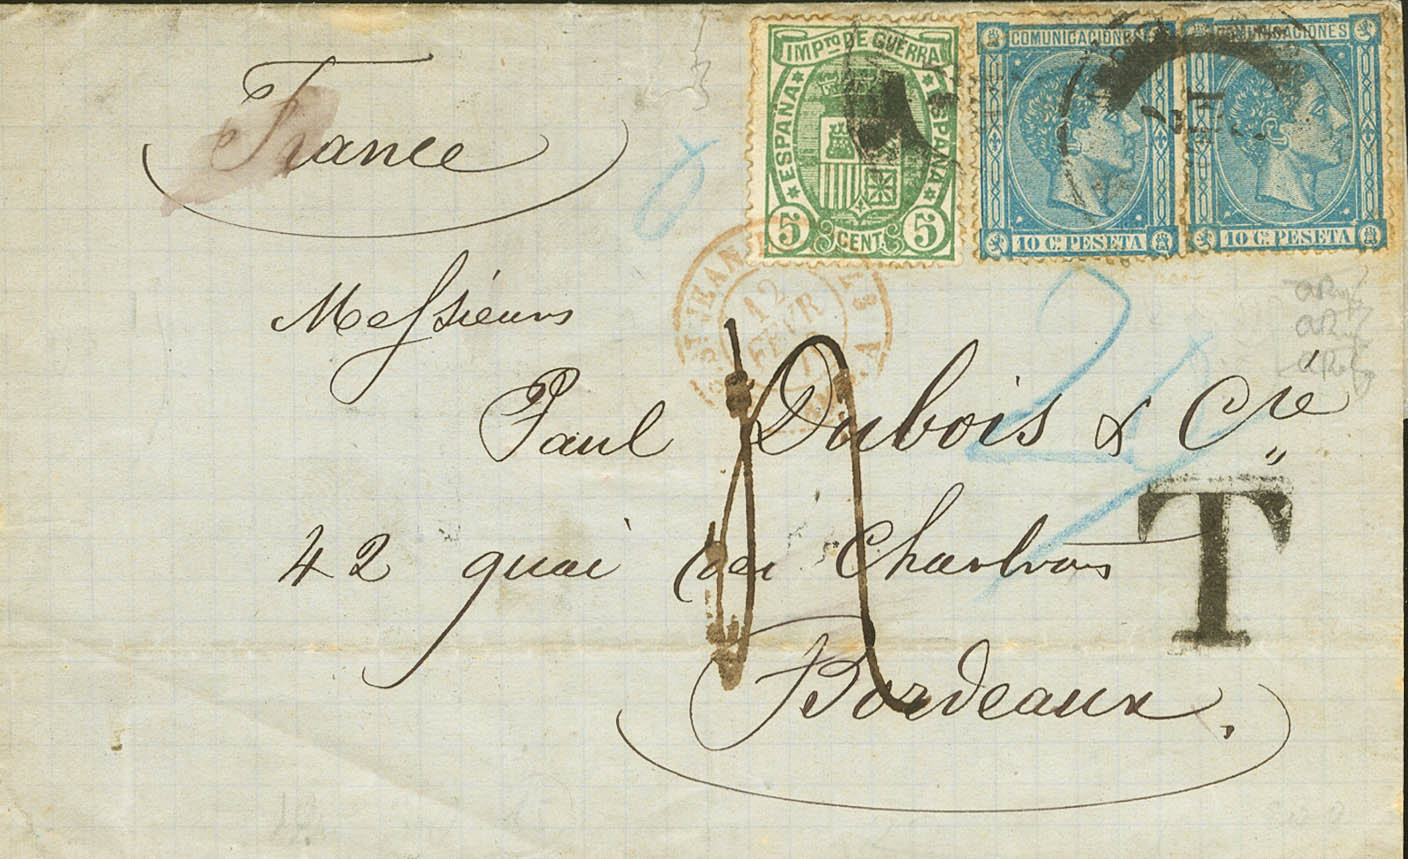 IMPto DE GUERRA
* ESPAÑA *
* ESPAÑA *
5 CENT. 5
COMUNICACIONES
10 Cs. PESETA
COMUNICACIONES
10 Cs. PESETA
France
12
FEVR
Messieurs
Paul Dubois & Cie
T
42 quai des Chartrons
Bordeaux.